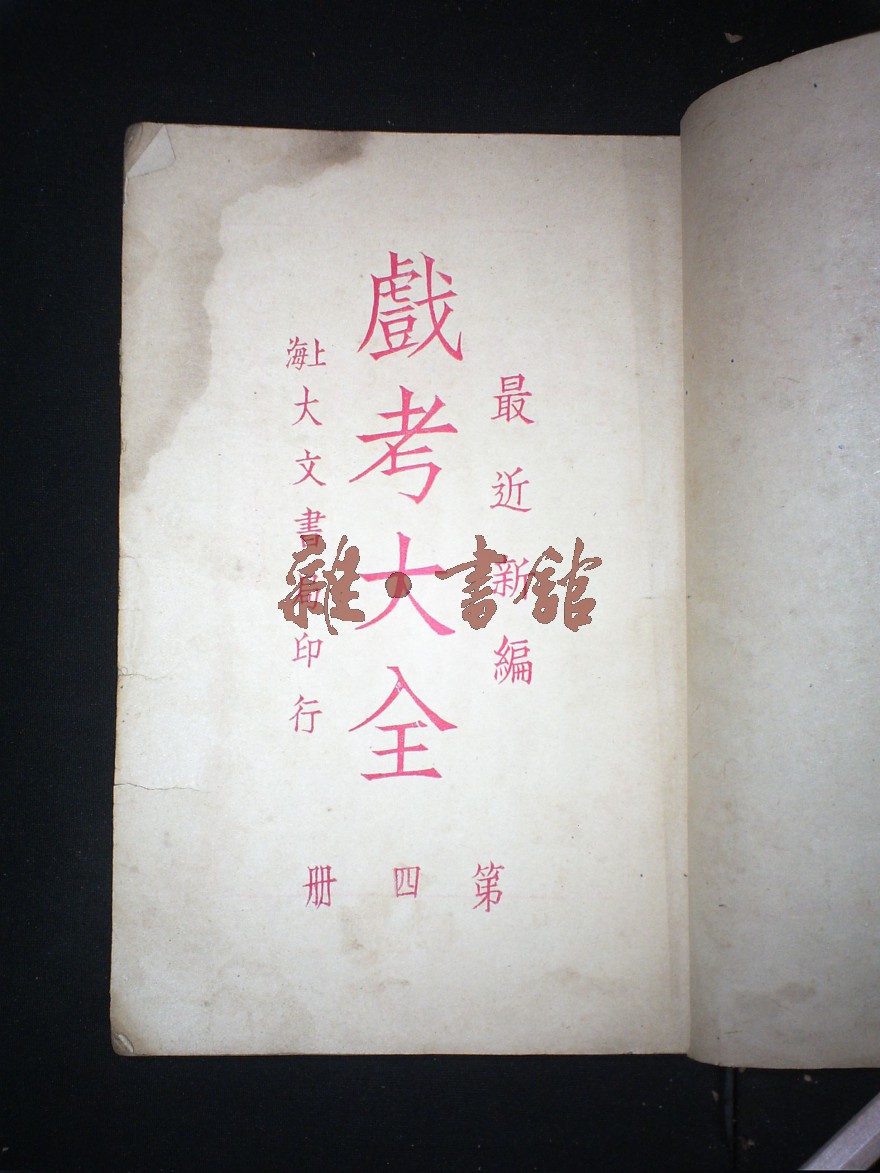 最近新編
戲考大全
上海大文書局印行
第四册
雜·書館